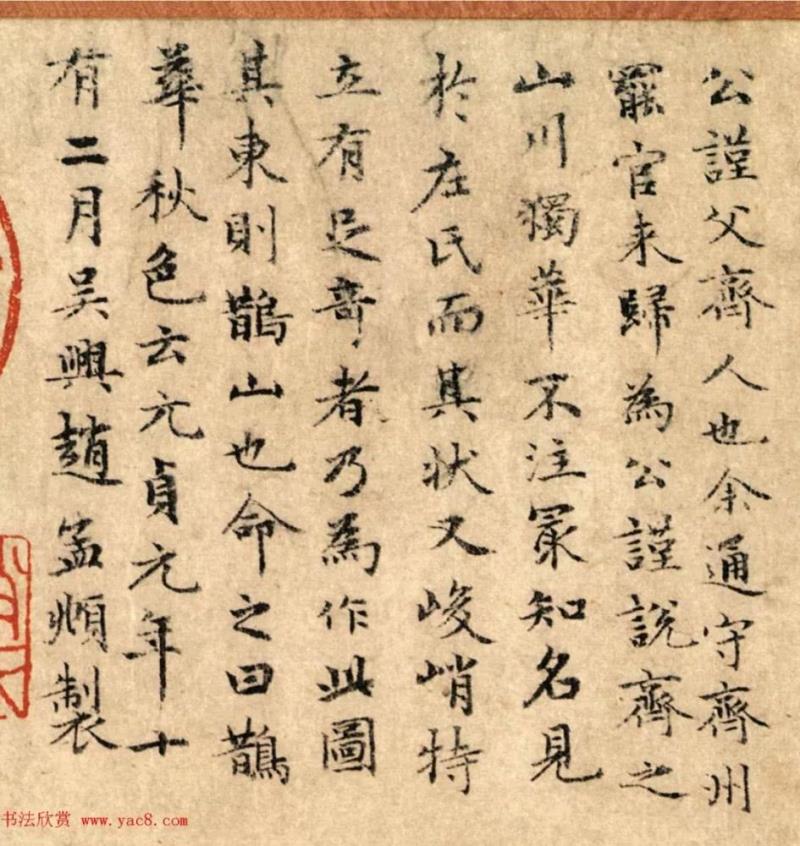 公謹父齊人也余通守齊州
罷官来歸為公謹說齊之
山川獨華不注冣知名見
於左氏而其状又峻峭特
立有足竒者乃為作此圖
其東則鵲山也命之曰鵲
華秋色云元貞元年十
有二月吴興趙孟頫製
书法欣赏 www.yac8.com